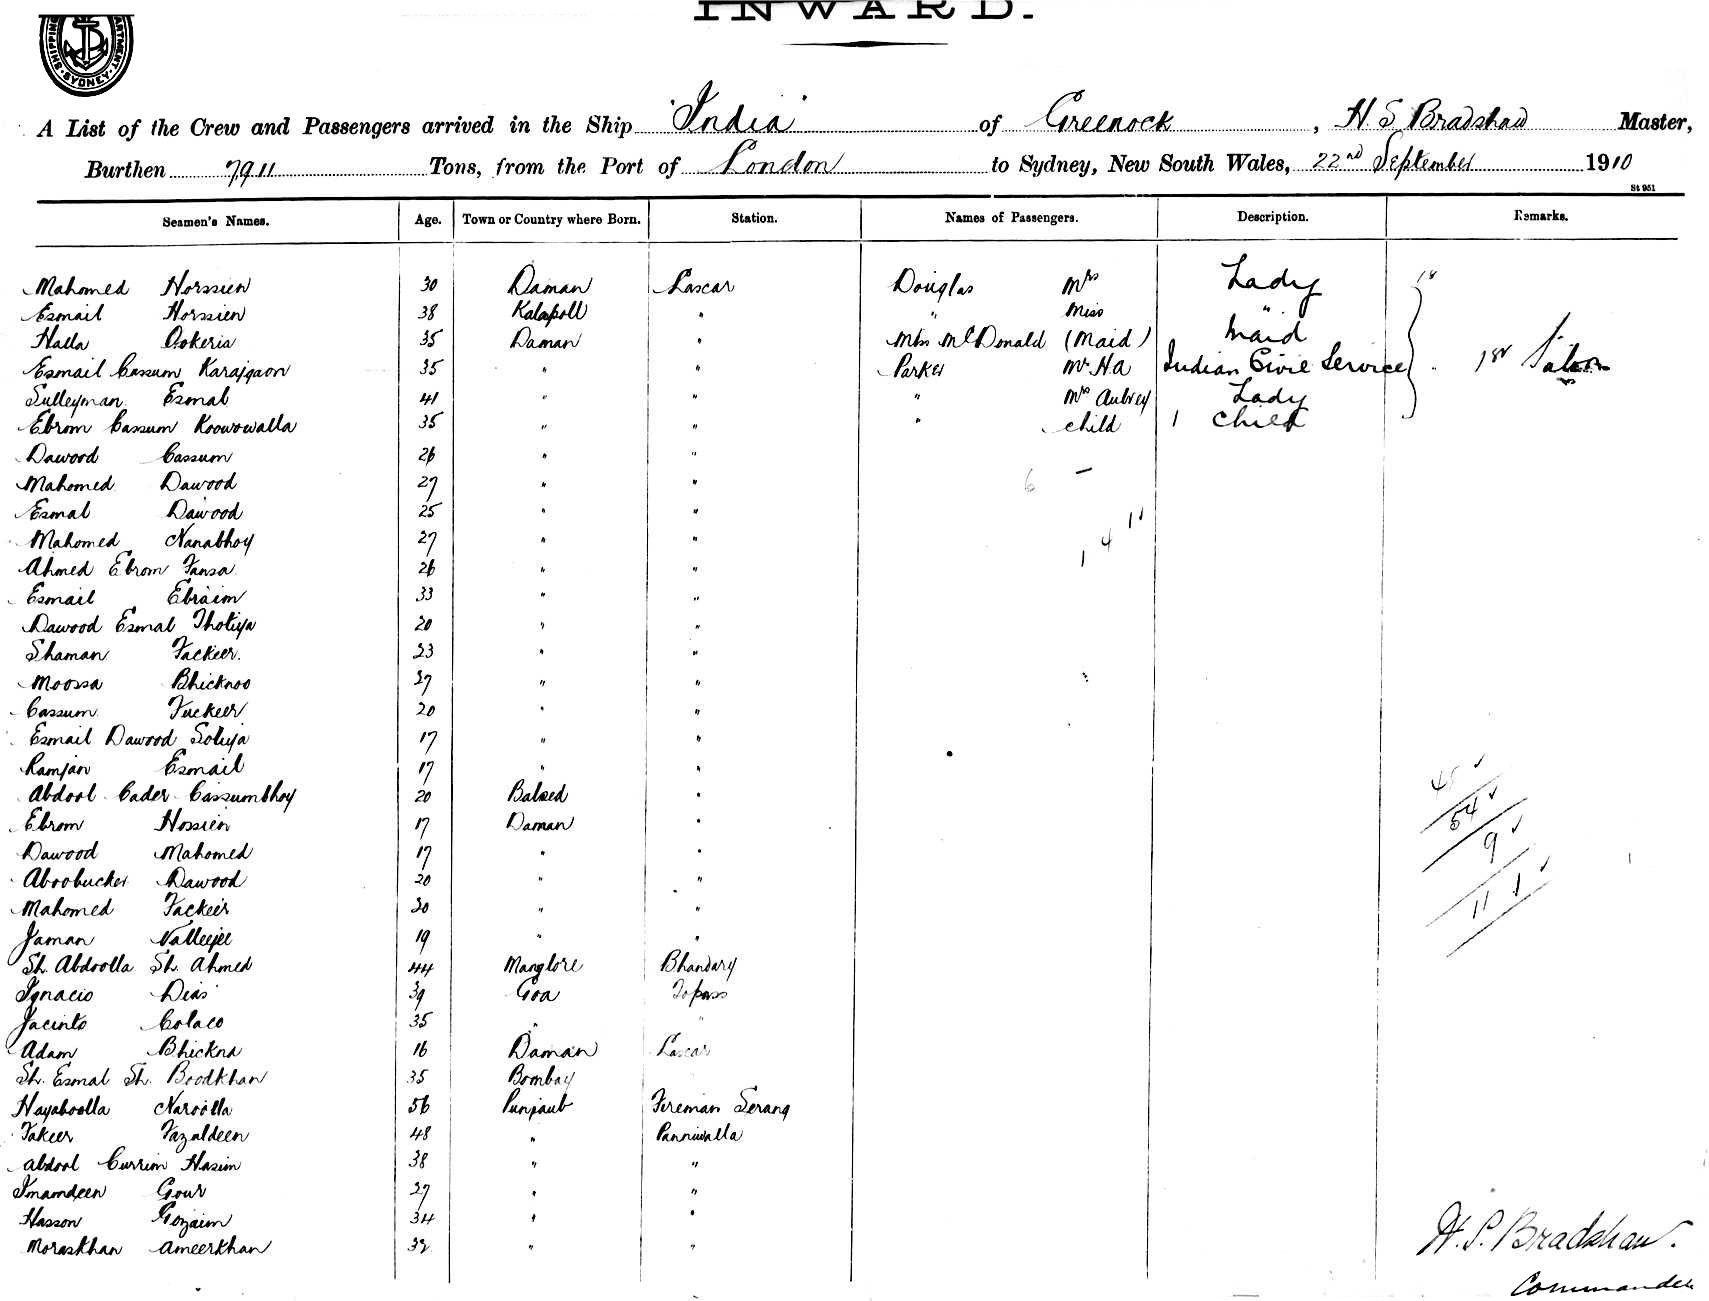 INWARD.
SHIPPING DEPARTMENT SYDNEY
A List of the Crew and Passengers arrived in the Ship "India" of Greenock, H. S. Bradshaw Master,
Burthen 7911 Tons, from the Port of London to Sydney, New South Wales, 22nd September 1910
St 951
Seamen's Names. Age. Town or Country where Born. Station. Names of Passengers. Description. Remarks.
Mahomed Horssien 30 Daman Lascar Douglas Mrs Lady
Esmail Horssien 38 " " Miss "
Halla 35 Daman " Miss McDonald (Maid) Maid
Esmail Cassum Karajgaon 35 " " Parker Mr H A Indian Civil Service 1st Saloon
Sulleyman Esmal 41 " " " Mrs Aubrey Lady
Ebrom Cassum Koowowalla 35 " " " child 1 Child
Dawood Cassum 26 " "
Mahomed Dawood 27 " "
6 –
Esmal Dawood 25 " "
Mahomed Nanabhoy 27 " "
1 4 11
Ahmed Ebrom Fansa 26 " "
Esmail Ebraim 33 " "
Dawood Esmal Thotiya 20 " "
Shaman Fackeer. 23 " "
Moossa Bhicknoo 27 " "
Cassum Fuckeer 20 " "
Esmail Dawood Soliya 17 " "
Ramjan Esmail 17 " "
Abdool Cader Cassumbhoy 20 Balsed "
Ebrom Hossien 17 Daman "
54
Dawood Mahomed 17 " "
9
Aboobucker Dawood 20 " "
11 1
Mahomed Fackeir 30 " "
Jaman Valleejee 19 " "
Sh. Abdoolla Sh. Ahmed 44 Manglore Bhandary
Ignacio Dias 39 Goa Topass
Jacinto Colaco 35 " "
Adam Bhickna 16 Daman Lascar
Sh. Esmal Sh. Boodkhan 35 Bombay
Hayaboolla Naroolla 56 Punjaub Fireman Serang
Fakeer Fazaldeen 48 " Panniwalla
Abdool Currim Hasim 38 " "
Imamdeen Gour 27 " "
Hasson Gozaim 34 " "
Moraskhan Ameerkhan 32 " "
H. S. Bradshaw.
Commander